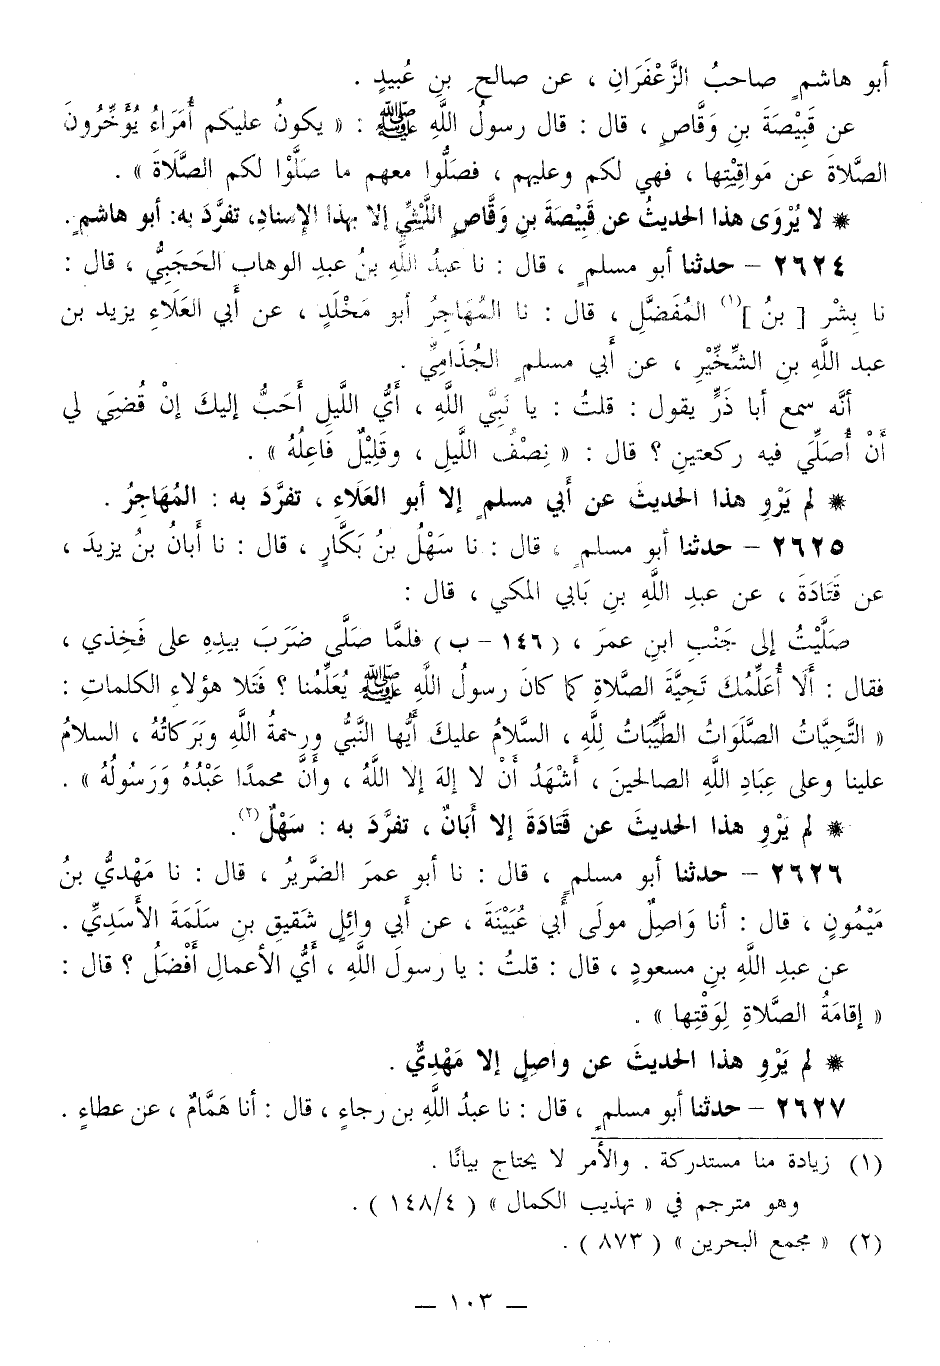 أبو هاشمٍ صاحبُ الزَّعْفَرَانِ ، عن صالحِ بنِ عُبيدٍ .
عن قَبِيْصَةَ بنِ وَقَّاصٍ ، قال : قال رسولُ اللَّهِ ﷺ : « يكونُ عليكم أُمَرَاءُ يُؤَخِّرُونَ
الصَّلاةَ عن مَواقِيْتِها ، فهي لكم وعليهم ، فصَلُّوا معهم ما صَلَّوْا لكم الصَّلَاةَ » .
* لا يُرْوَى هذا الحديثُ عن قَبِيْصَةَ بنِ وَقَّاصٍ اللَّيْثِيِّ إلا بهذا الإِسنادِ، تفرَّدَ به: أبو هاشمٍ.
٢٦٢٤ – حدثنا أبو مسلمٍ ، قال : نا عبدُ اللَّهِ بنُ عبدِ الوهاب الحَجَبِيُّ ، قال :
نا بِشْر [ بنُ ](١) المُفَضَّلِ ، قال : نا المُهَاجِرُ أبو مَخْلَدٍ ، عن أَبي العَلَاءِ يزيد بن
عبد اللَّهِ بنِ الشِّخِّيْرِ ، عن أَبي مسلمٍ الجُذَامِيِّ .
أنَّه سمع أبا ذَرٍّ يقول : قلتُ : يا نَبِيَّ اللَّهِ ، أَيُّ اللَّيلِ أَحَبُّ إليكَ إنْ قُضِيَ لي
أَنْ أُصَلِّيَ فيه ركعتينِ ؟ قال : « نِصْفُ اللَّيلِ ، وقَلِيْلٌ فَاعِلُهُ » .
* لم يَرْوِ هذا الحديثَ عن أَبي مسلمٍ إلا أبو العَلَاءِ ، تفرَّدَ به : المُهَاجِرُ .
٢٦٢٥ – حدثنا أبو مسلمٍ ، قال : نا سَهْلُ بنُ بَكَّارٍ ، قال : نا أَبانُ بنُ يزيدَ ،
عن قَتَادَةَ ، عن عبدِ اللَّهِ بنِ بَابي المكي ، قال :
صَلَّيْتُ إلى جَنْبِ ابنِ عمرَ ، ( ١٤٦ – ب ) فلمَّا صَلَّى ضَرَبَ بيدِهِ على فَخِذي ،
فقال : أَلَا أُعَلِّمُكَ تَحِيَّةَ الصَّلاةِ كما كانَ رسولُ اللَّهِ ﷺ يُعَلِّمُنا ؟ فَتَلا هؤلاءِ الكلماتِ :
« التَّحِيَّاتُ الصَّلَوَاتُ الطَّيِّبَاتُ لِلَّهِ ، السَّلَامُ عليكَ أَيُّها النَّبِيُّ ورحمةُ اللَّهِ وبَرَكاتُهُ ، السلامُ
علينا وعلى عِبَادِ اللَّهِ الصالحينَ ، أَشْهَدُ أَنْ لا إلهَ إلا اللَّهُ ، وأَنَّ محمدًا عَبْدُهُ وَرَسُولُهُ » .
* لم يَرْوِ هذا الحديثَ عن قَتَادَةَ إلا أَبَانٌ ، تفرَّدَ به : سَهْلٌ(٢).
٢٦٢٦ – حدثنا أبو مسلمٍ ، قال : نا أبو عمرَ الضَّرِيرُ ، قال : نا مَهْديُّ بنُ
مَيْمُونٍ ، قال : أنا وَاصِلٌ مولَى أَبي عُيَيْنَةَ ، عن أَبي وائِلٍ شَقيقِ بنِ سَلَمَةَ الأَسَدِيِّ .
عن عبدِ اللَّهِ بنِ مسعودٍ ، قال : قلتُ : يا رسولَ اللَّهِ ، أَيُّ الأعمالِ أَفْضَلُ ؟ قال :
« إقامَةُ الصَّلَاةِ لِوَقْتِها » .
* لم يَرْوِ هذا الحديثَ عن واصِلٍ إلا مَهْدِيٌّ .
٢٦٢٧ – حدثنا أبو مسلمٍ ، قال : نا عبدُ اللَّهِ بن رجاءٍ ، قال : أنا هَمَّامٌ ، عن عطاءٍ .
(١) زيادة منا مستدركة . والأمر لا يحتاج بيانًا .
وهو مترجم في « تهذيب الكمال » ( ١٤٨/٤ ) .
(٢) « مجمع البحرين » ( ٨٧٣ ) .
— ١٠٣ —